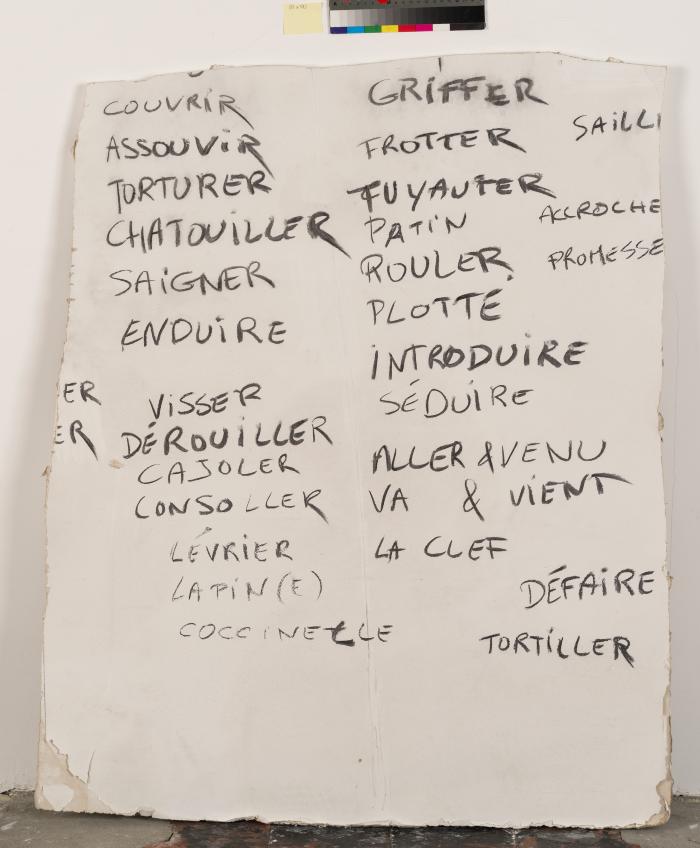 COUVRIR
ASSOUVIR
TORTURER
CHATOUILLER
SAIGNER
ENDUIRE
ER
ER
VISSER
DÉROUILLER
CAJOLER
CONSOLLER
LÉVRIER
LAPIN(E)
COCCINELLE
GRIFFER
FROTTER
FUYAUTER
PATIN
ROULER
PLOTTÉ
INTRODUIRE
SÉDUIRE
ALLER & VENU
VA & VIENT
LA CLEF
DÉFAIRE
TORTILLER
SAILLI
ACCROCHE
PROMESSE